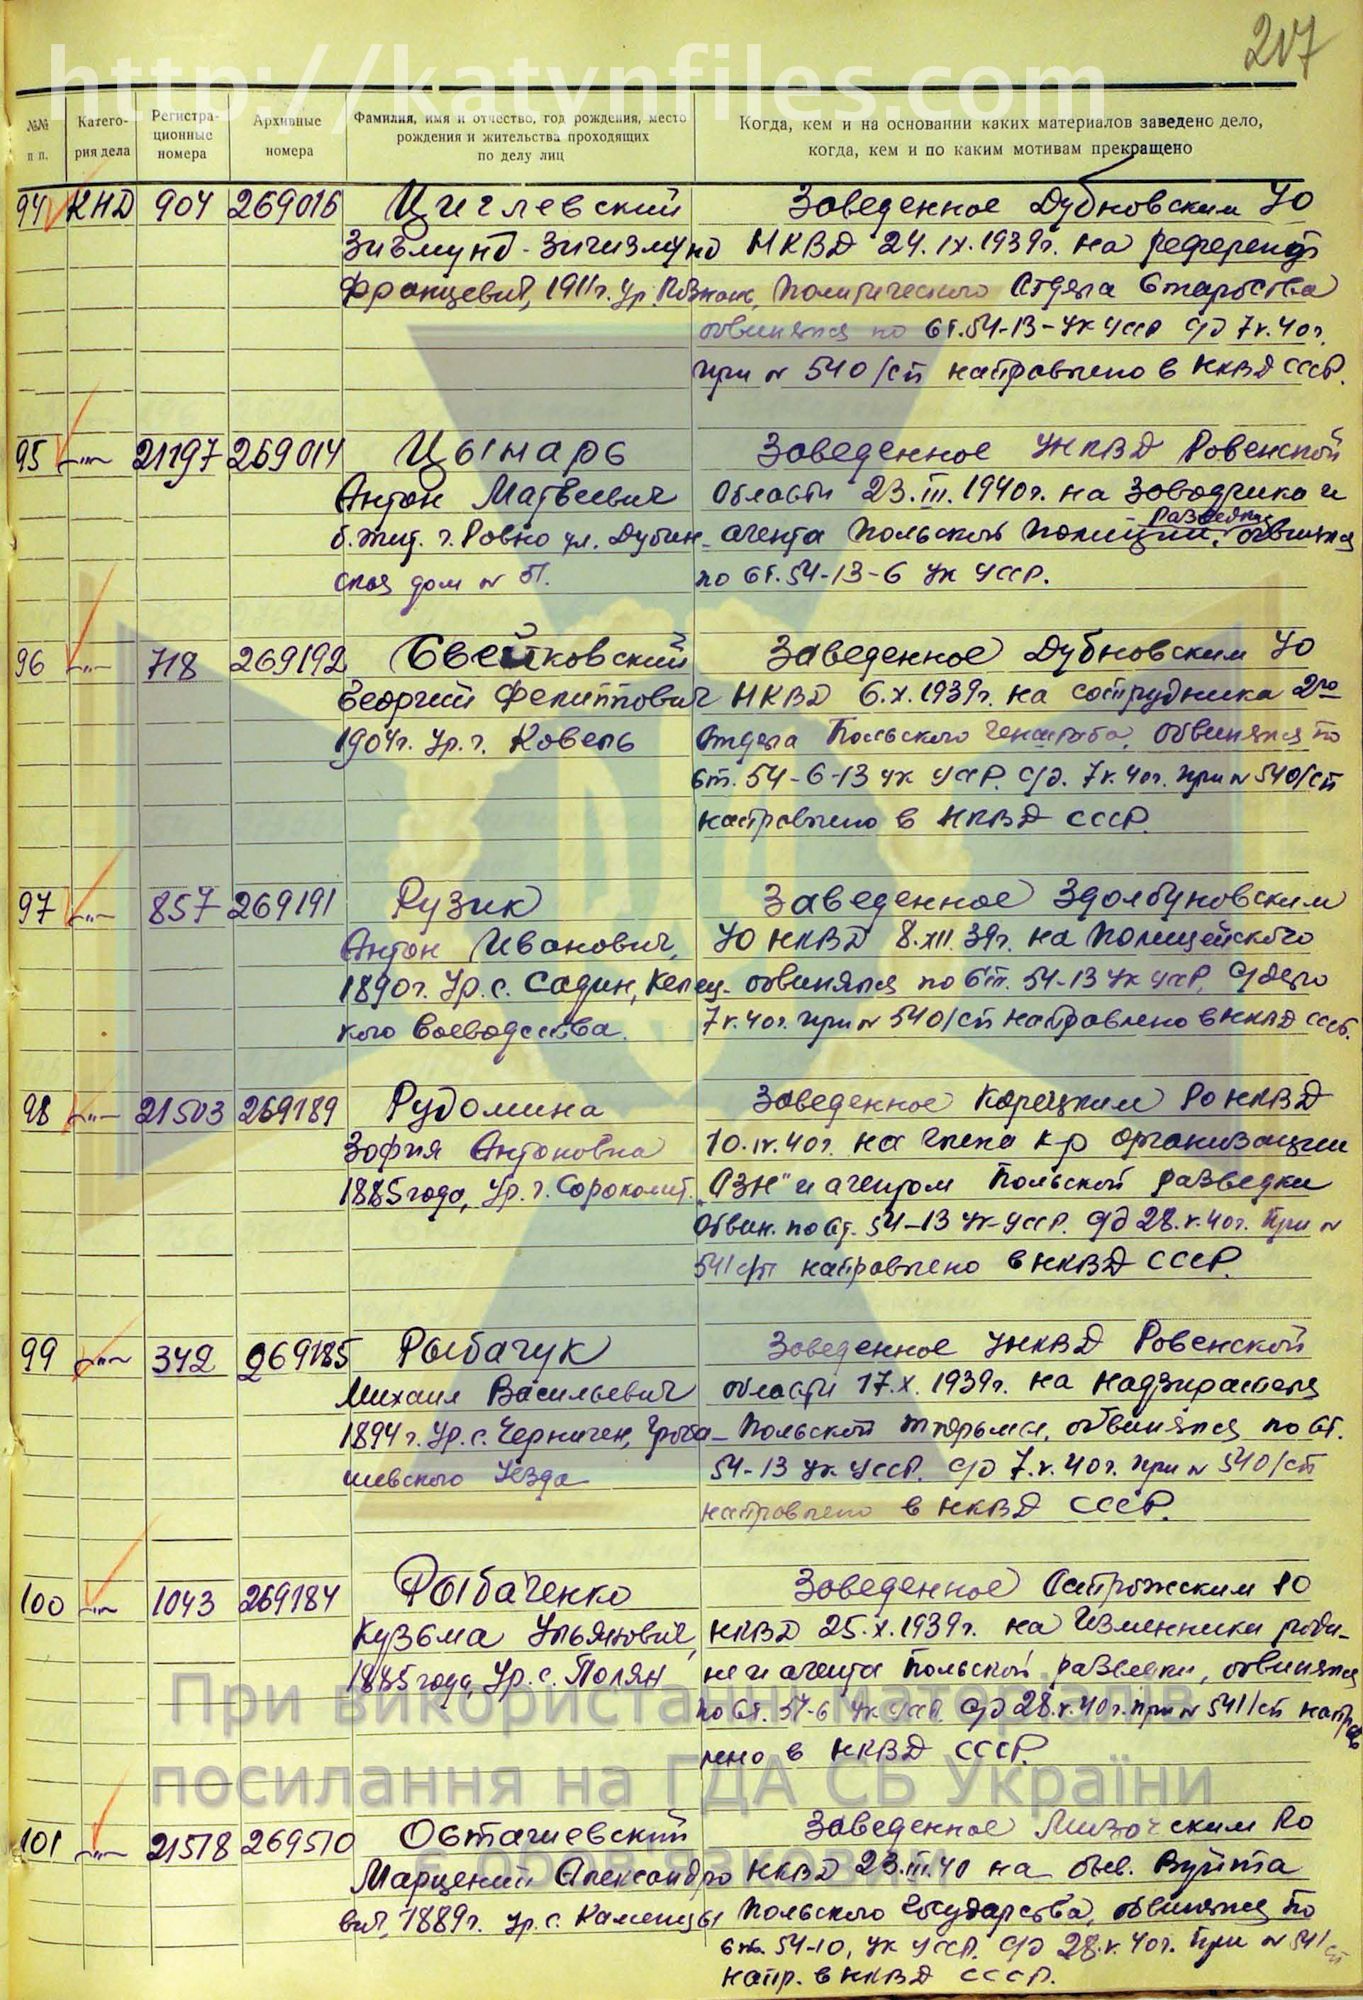 217
http://katynfiles.com
№№ п п.
Катего-
рия дела
Регистра-
ционные
номера
Архивные
номера
Фамилия, имя и отчество, год рождения, место
рождения и жительства проходящих
по делу лиц
Когда, кем и на основании каких материалов заведено дело,
когда, кем и по каким мотивам прекращено
94 КНД 904 269016 Циглевский
Франциевич, 1911г. Ур. Познань,
Заведенное Дубновским УО
НКВД 24.IX.1939г. на референта
Политического Отдела Староства
обвинялся по ст. 54-13-УК УССР С/д 7.V.40г.
при № 540/сп направлено в НКВД СССР.
95 —"— 21197 269014 Цымарь
Антон Матвеевич
б. жит. г. Ровно ул. Дубин-
ская дом №
Заведенное УНКВД Ровенской
Области 23.III.1940г. на Заводчика и
разведки
агента Польской полиции, обвинялся
по ст. 54-13-6 УК УССР.
96 —"— 718 269192 Свейковский
Георгий Филиппович
1904г. Ур. г. Ковель
Заведенное Дубновским УО
НКВД 6.X.1939г. на сотрудника 2го
Отдела Польского Генштаба, обвинялся по
ст. 54-6-13 УК УССР. С/д. 7.V.40г. при № 540/сп
направлено в НКВД СССР.
97 —"— 857 269191 Рузик
Антон Иванович,
1890г. Ур. с. Садин, Келец-
кого Воеводства.
Заведенное Здолбуновским
УО НКВД 8.XII.39г. на Полицейского
обвинялся по ст. 54-13 УК УССР, С/дело
7.V.40г. при № 540/сп направлено в НКВД СССР.
98 —"— 21503 269189 Рудомина
Зофия Антоновна
1885 года, Ур. г.
Заведенное Корецким РО НКВД
10.IV.40г. на члена к-р организации
и агентом Польской разведки
Обвин. по ст. 54-13 УК УССР. С/д 28.V.40г. При №
541/сп направлено в НКВД СССР.
99 —"— 342 269185 Рыбачук
Михаил Васильевич
1894г. Ур. с. Черничен, Грубе-
шевского Уезда
Заведенное УНКВД Ровенской
области 17.X.1939г. на надзирателя
Польской тюрьмы, обвинялся по ст.
54-13 УК УССР. С/д 7.V.40г. при № 540/сп
направлено в НКВД СССР.
100 —"— 1043 269184 Рыбаченко
Кузьма Ульянович,
1885 года, Ур. с. Полян
Заведенное Острожским РО
НКВД 25.X.1939г. на Изменника роди-
не и агента Польской разведки, обвинялся
по ст. 54-6 УК УССР. С/д 28.V.40г. при № 541/сп направ
лено в НКВД СССР.
101 —"— 21518 269510 Осташевский
Марцений Александро
вич, 1889г. Ур. с. Каменцы
Заведенное Мизочским РО
НКВД 23.III.40 на быв. Вуйта
Польского Государства, обвинялся по
ст. 54-10, УК УССР. С/д 28.V.40г. При № 541/сп
напр. в НКВД СССР.
При використанні матеріалів
посилання на ГДА СБ України
є обов'язковим